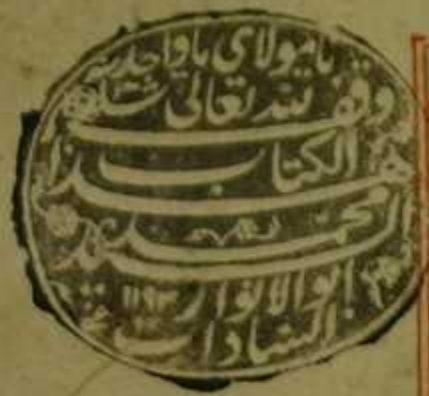 يا مولاي يا واحد
وقف لله تعالى
هذا الكتاب
السيد محمد
ابو الانوار ١١٩٣
السادات